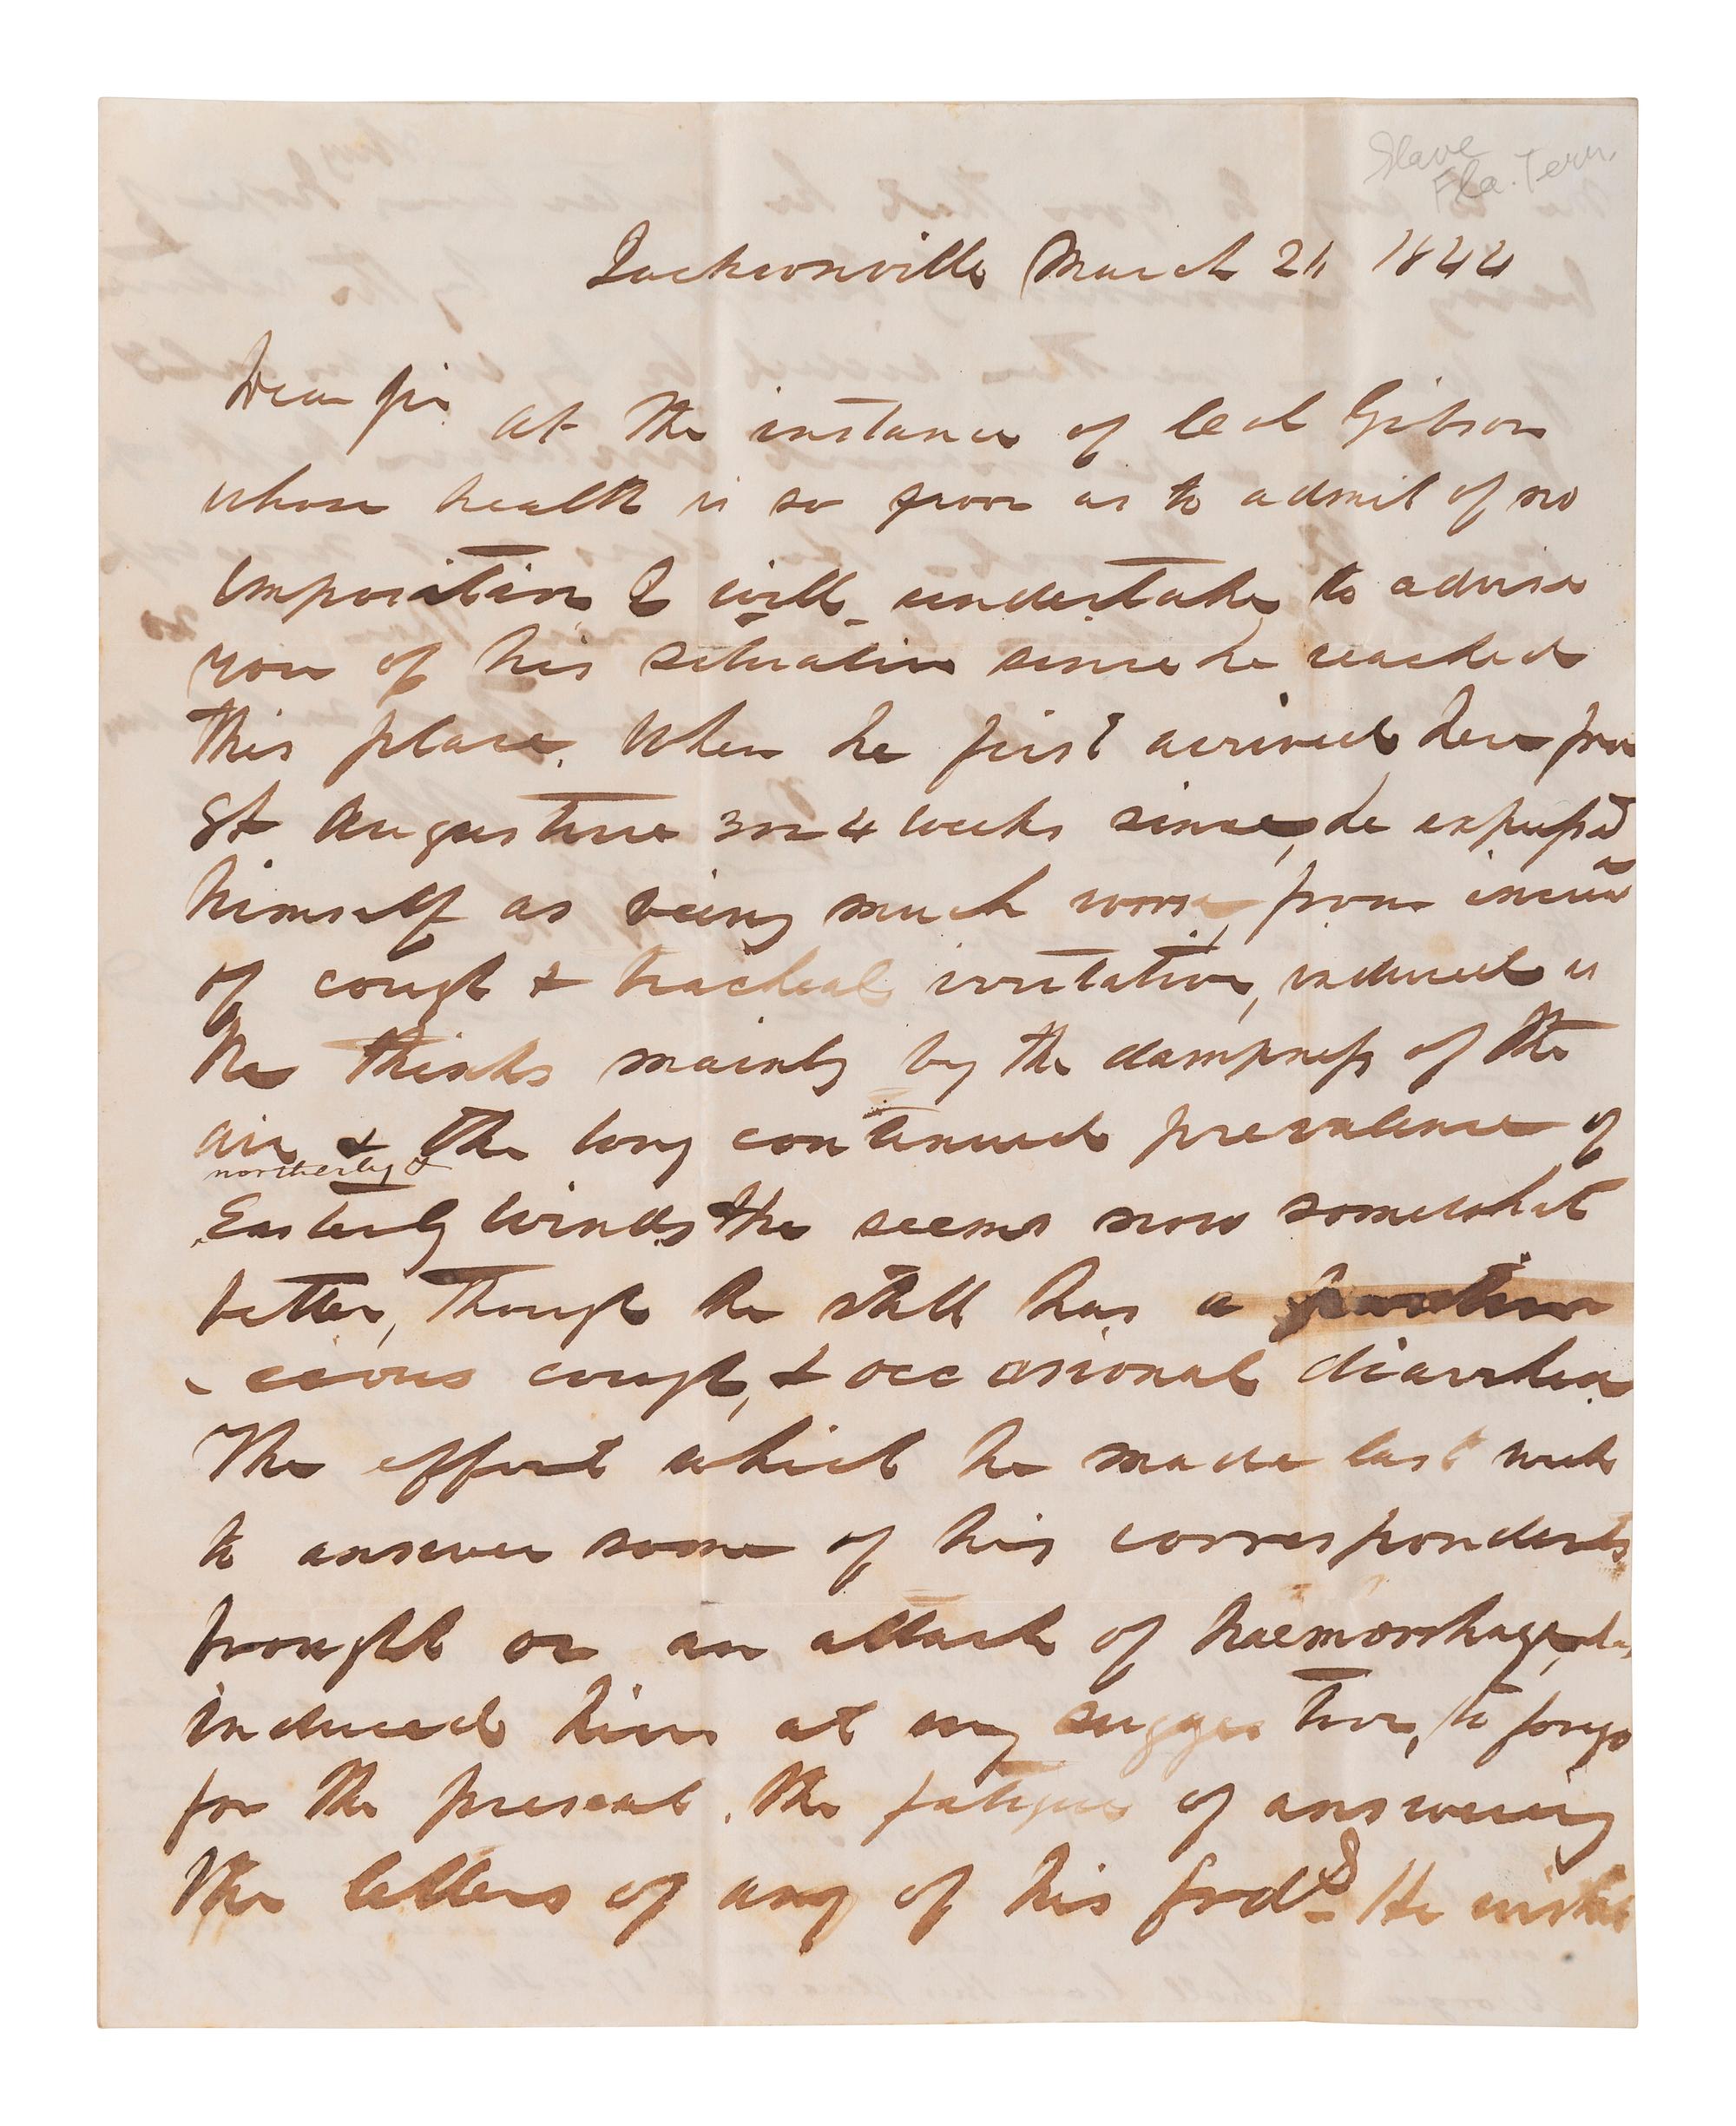 Slave
Fla. Terr.
Jacksonville March 21 1844
Dear Sir
at the instance of Col Gibson
whose health is so poor as to admit of no
imposition I will undertake to advise
you of his situation since he reached
this place. When he first arrived here from
St Augustine 3 or 4 weeks since, he expressd
himself as being much worse, from increase
of cough & tracheal irritation, induced as
he thinks mainly by the dampness of the
air & the long continued prevalence of
northerly &
Easterly winds he seems now somewhat
better, though he still has a
cough, & occasional diarrhea
The effort which he made last week
to answer some of his correspondents
brought on an attack of haemorrhage,
induced him at my suggestion, to forgo
for the present, the fatigue of answering
the letters of any of his frds He wishes